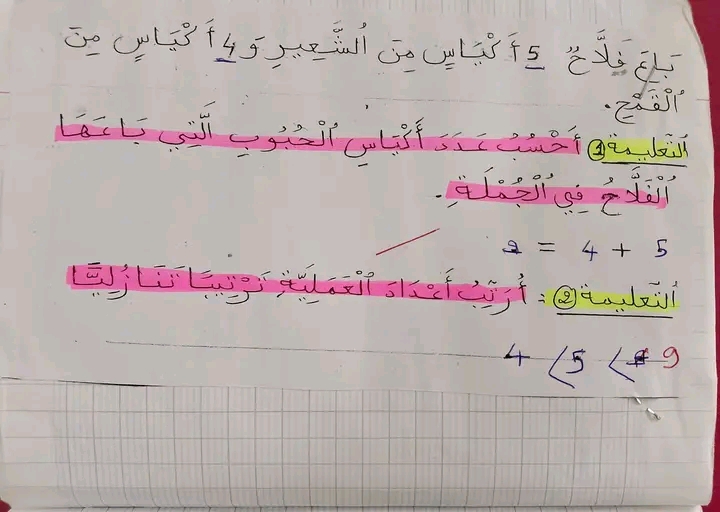 بَاعَ فَلَّاحٌ 5 أَكْيَاسٍ مِنَ الشَّعِيرِ وَ 4 أَكْيَاسٍ مِنَ
الْقَمْحِ.
التعليمة 1 أَحْسُبُ عَدَدَ أَكْيَاسِ الْحُبُوبِ الَّتِي بَاعَهَا
الْفَلَّاحُ فِي الْجُمْلَةِ.
5 + 4 = 9
التعليمة 2: أُرَتِّبُ أَعْدَادَ الْعَمَلِيَّةِ تَرْتِيبًا تَنَازُلِيًّا
9 > 5 > 4